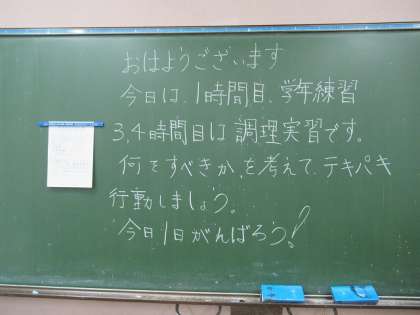 おはようございます
今日は、1時間目、学年練習
3,4時間目は調理実習です。
何をすべきか、を考えて、テキパキ
行動しましょう。
今日1日がんばろう!